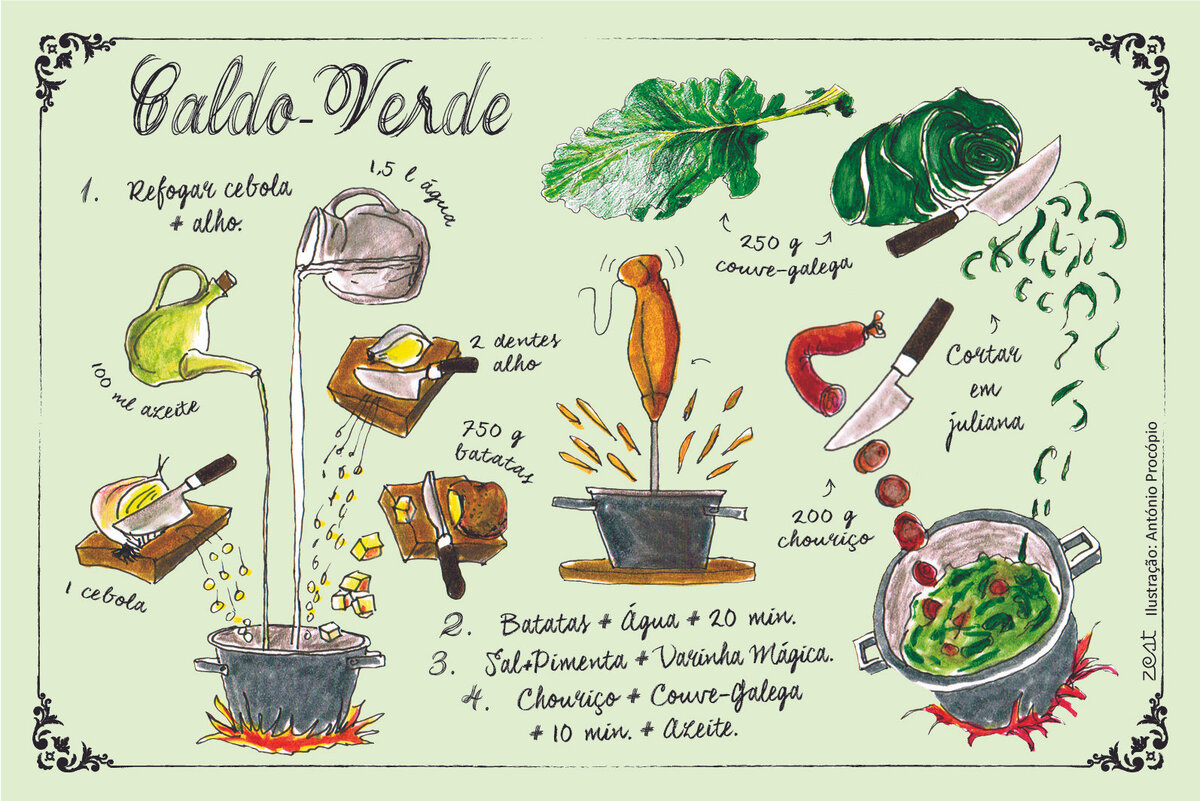 Caldo-Verde
1. Refogar cebola
+ alho.
1,5 l água
100 ml azeite
2 dentes
alho
750 g
batatas
1 cebola
250 g
couve-galega
Cortar
em
juliana
200 g
chouriço
2. Batatas + Água + 20 min.
3. Sal+Pimenta + Varinha Mágica.
4. Chouriço + Couve-Galega
+ 10 min. + Azeite.
Zest Ilustração: António Procópio